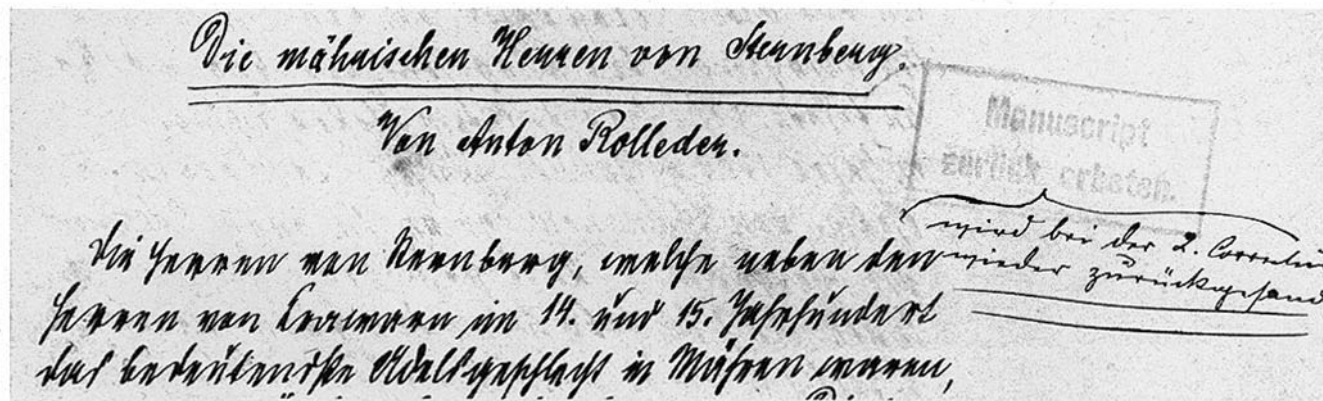 Die mährischen Herren von Sternberg.
Von Anton Rolleder.
Manuscript
zurück erbeten.
wird bei der 2. Correctur
wieder zurückgesand
Die Herren von Sternberg, welche neben den
Herren von Krawarn im 14. und 15. Jahrhundert
das bedeutendste Adelsgeschlecht in Mähren waren,